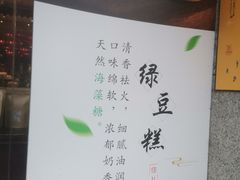 绿豆糕
清香祛火，细腻油润
口味绵软，浓郁奶香
天然海藻糖。